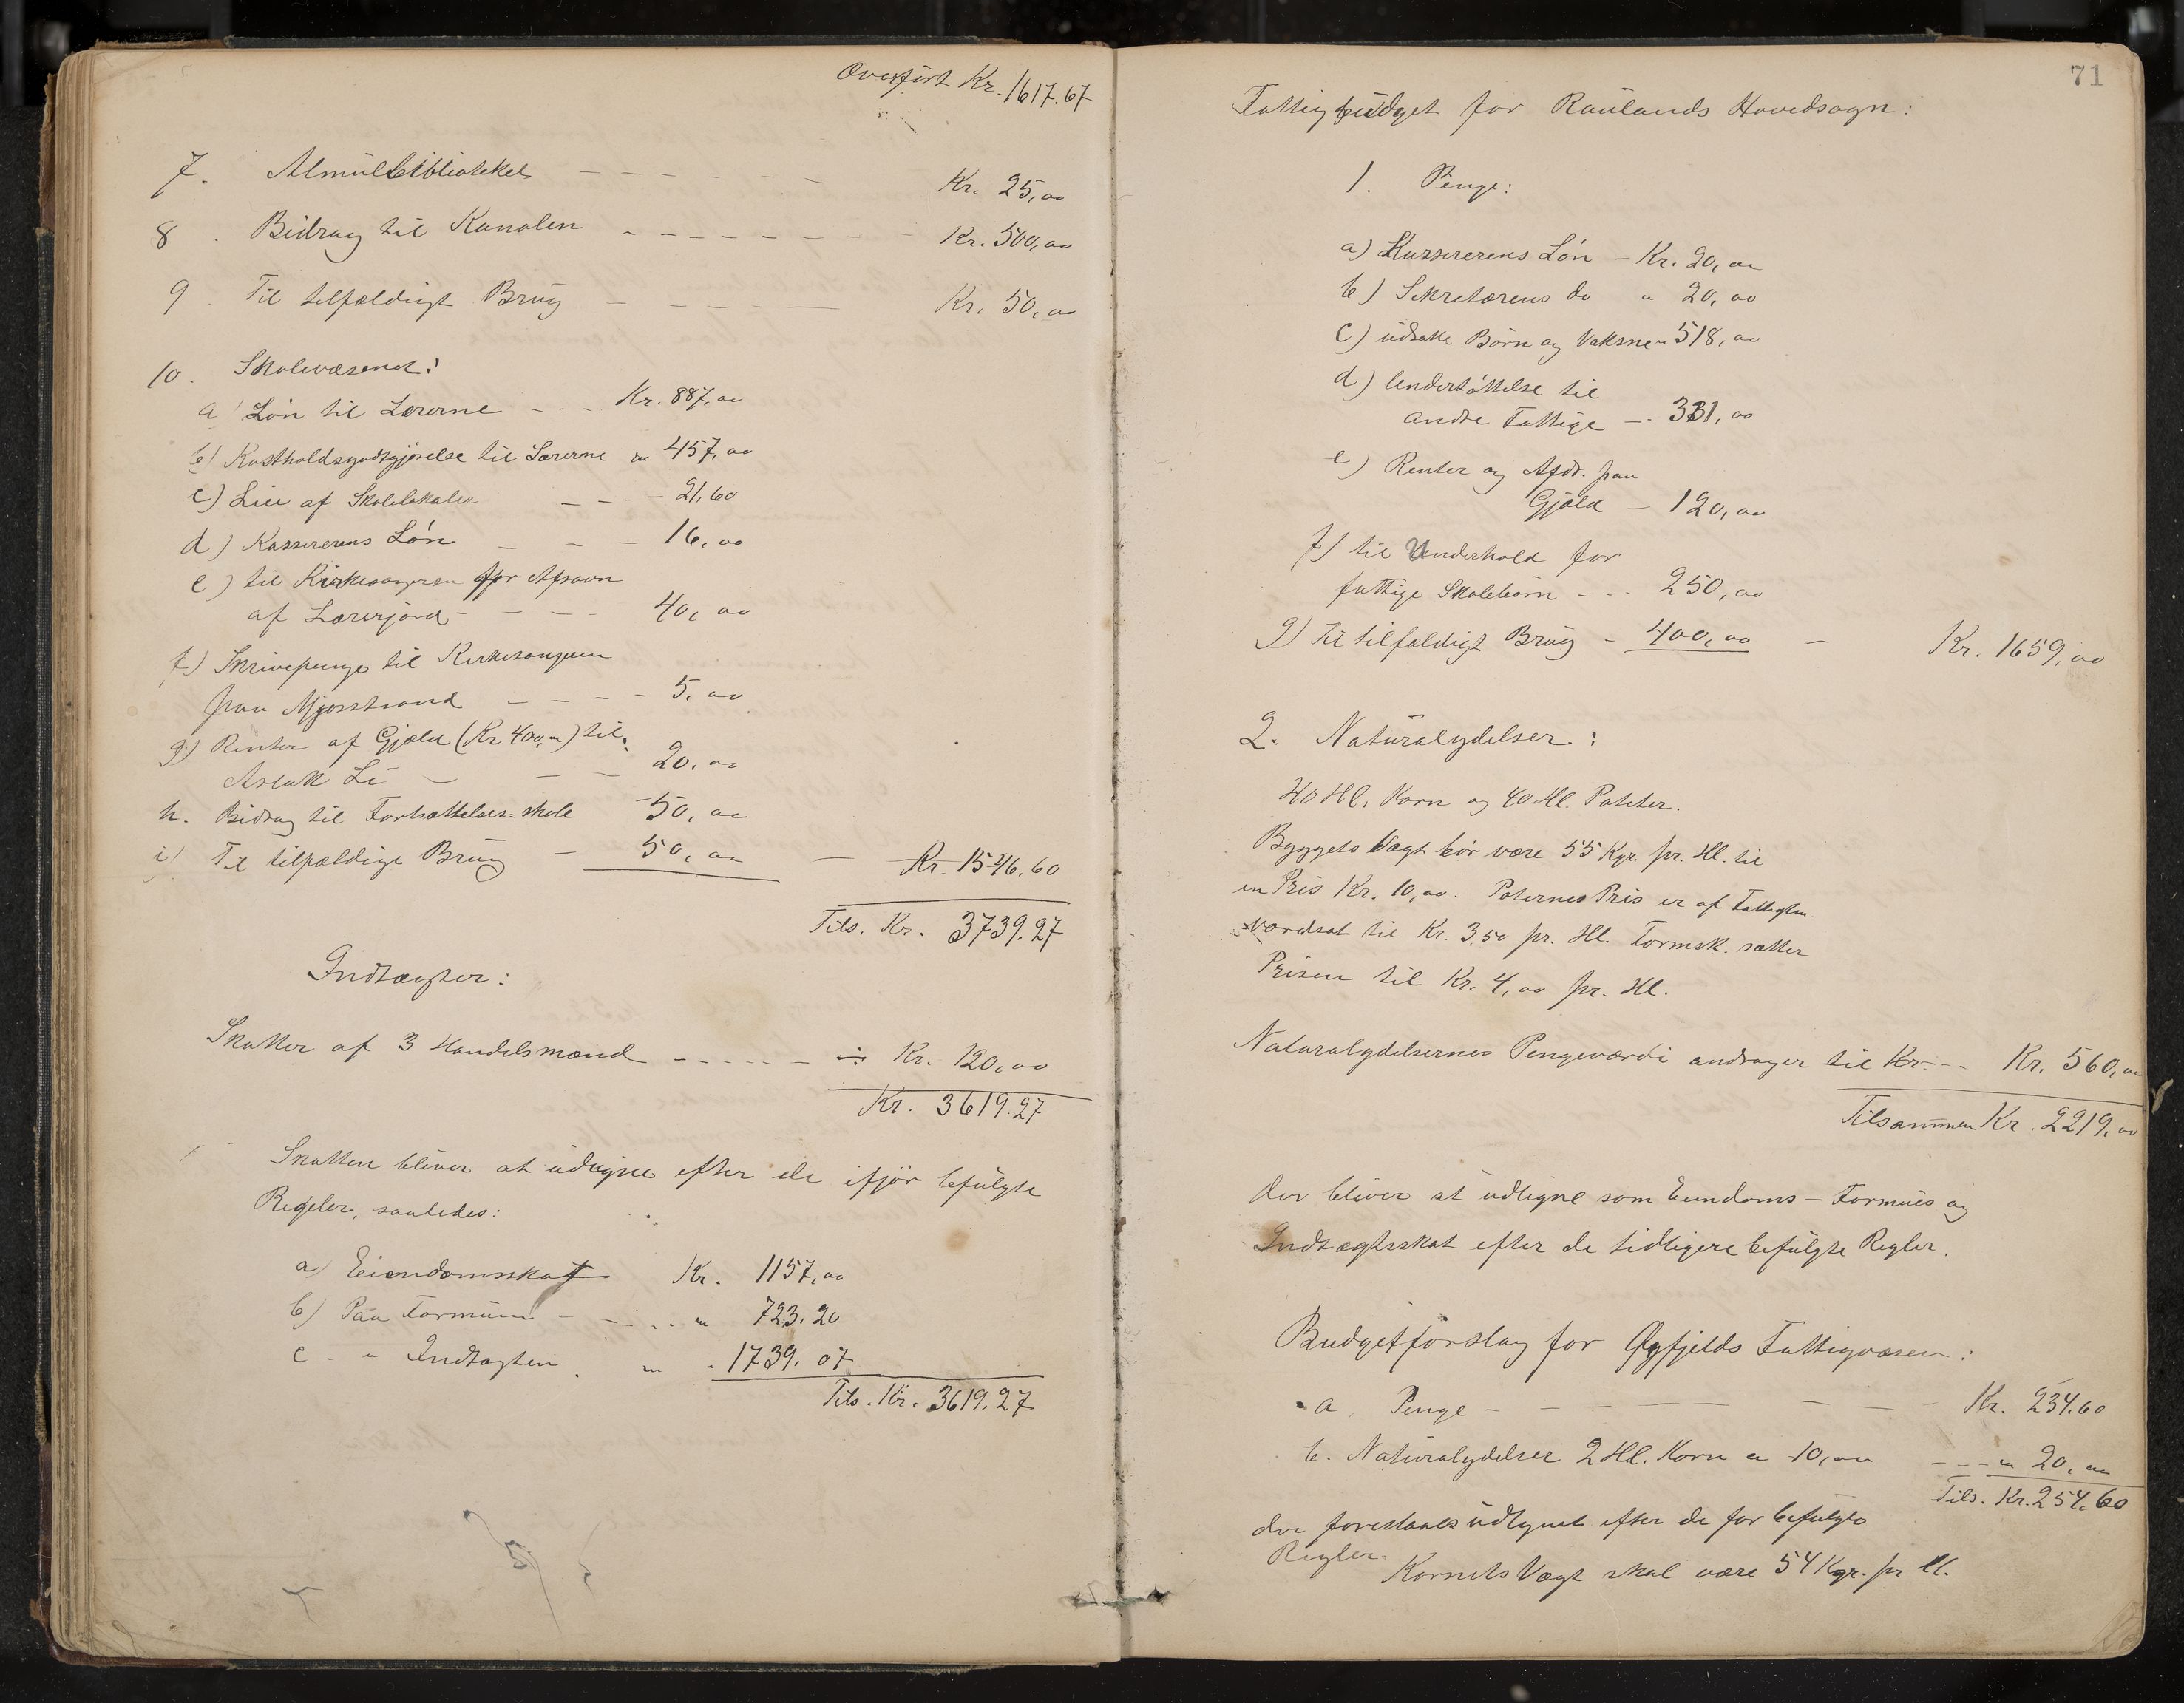 Overført Kr. 1617.67
7. Almuebibliotheket - - - - - - Kr. 25,00
8. Bidrag til Kanalen - - - - - - - - Kr. 500,00
9. Til tilfældigt Brug - - - - - Kr. 50,00
10. Skolevæsenet:
a) Løn til Lærerne - - - Kr. 887,00
b) Kostholdsgodtgjørelse til Lærerne " 457,00
c) Leie af Skolelokaler - - - - 21.60
d) Kassererens Løn - - - 16,00
e) til Kirkesangeren for Afsavn
af Lærerjord - - - - 40,00
f) Skrivepenge til Kirkesangeren
paa Mjøsstrand - - - - 5,00
g) Renter af Gjæld (Kr 400,00) til
Aslak Li - - - 20,00
h. Bidrag til Fortsættelses=skole 50,00
i) Til tilfældige Brug - 50,00 - Kr. 1546.60
Tils. Kr. 3739.27
Indtægter:
Skatter af 3 Handelsmænd - - - - - - ÷ Kr. 120,00
Kr. 3619.27
Skatten bliver at udligne efter de ifjor befulgte
Regeler, saaledes:
a) Eiendomsskat Kr. 1157,00
b) Paa Formuen - - - . " 723.20
c - " Indtægten . " 1739.07
Tils. Kr. 3619.27
71
Fattigbudget for Raulands Hovedsogn:
1. Penge:
a) Kassererens Løn - Kr. 20,00
b) Sekretærens do " 20,00
c) udsatte Børn og Vaksne " 518,00
d) Understøttelse til
andre Fattige - 331,00
e) Renter og Afdr. paa
Gjæld - 120,00
f) til Underhold for
fattige Skolebørn - - - 250,00
g) Til tilfældigt Brug - 400,00 - Kr. 1659,00
2. Naturalydelser:
40 Hl. Korn og 40 Hl. Poteter.
Byggets Vægt bør være 55 Kgr. pr. Hl. til
en Pris Kr. 10,00. Poternes Pris er af Fattigkm.
værdsat til Kr. 3,50 pr. Hl. Formsk. sætter
Prisen til Kr. 4,00 pr. Hl.
Naturalydelsernes Pengeværdi andrager til Kr. - - Kr. 560,00
Tilsammen Kr. 2219,00
der bliver at udligne som Eiendoms- Formues og
Indtægtsskat efter de tidligere befulgte Regler.
Budgetforslag for Øyfjelds Fattigvæsen:
a. Penge - - - - - - - Kr. 234.60
b. Naturalydelser 2 Hl. Korn a 10,00 - - - " 20,00
Tils. Kr. 254.60
der foreslaaes udlignet efter de før befulgte
Regler.
Kornets Vægt skal være 54 Kgr. pr Hl.